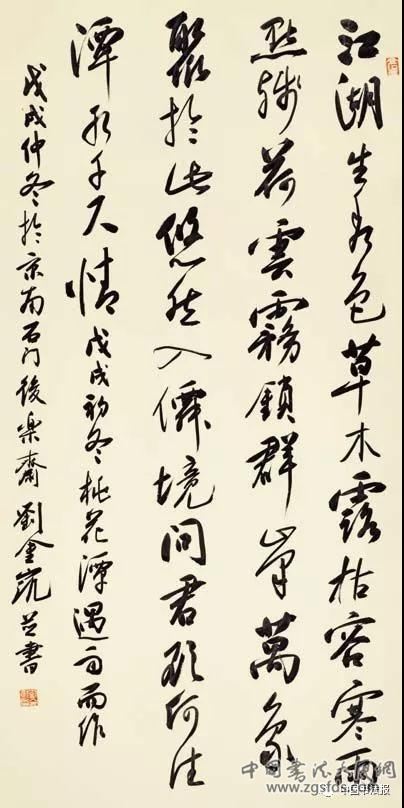 江湖生色草木露枯容寒雨
點残荷雲霧鎖群峯萬象
聚於此悠然入僊境問君欲何往
潭水千尺情 戊戌初冬桃花潭遇雨而作
戊戌仲冬於京南石门後樂齋 劉金凱並書
中国书法报